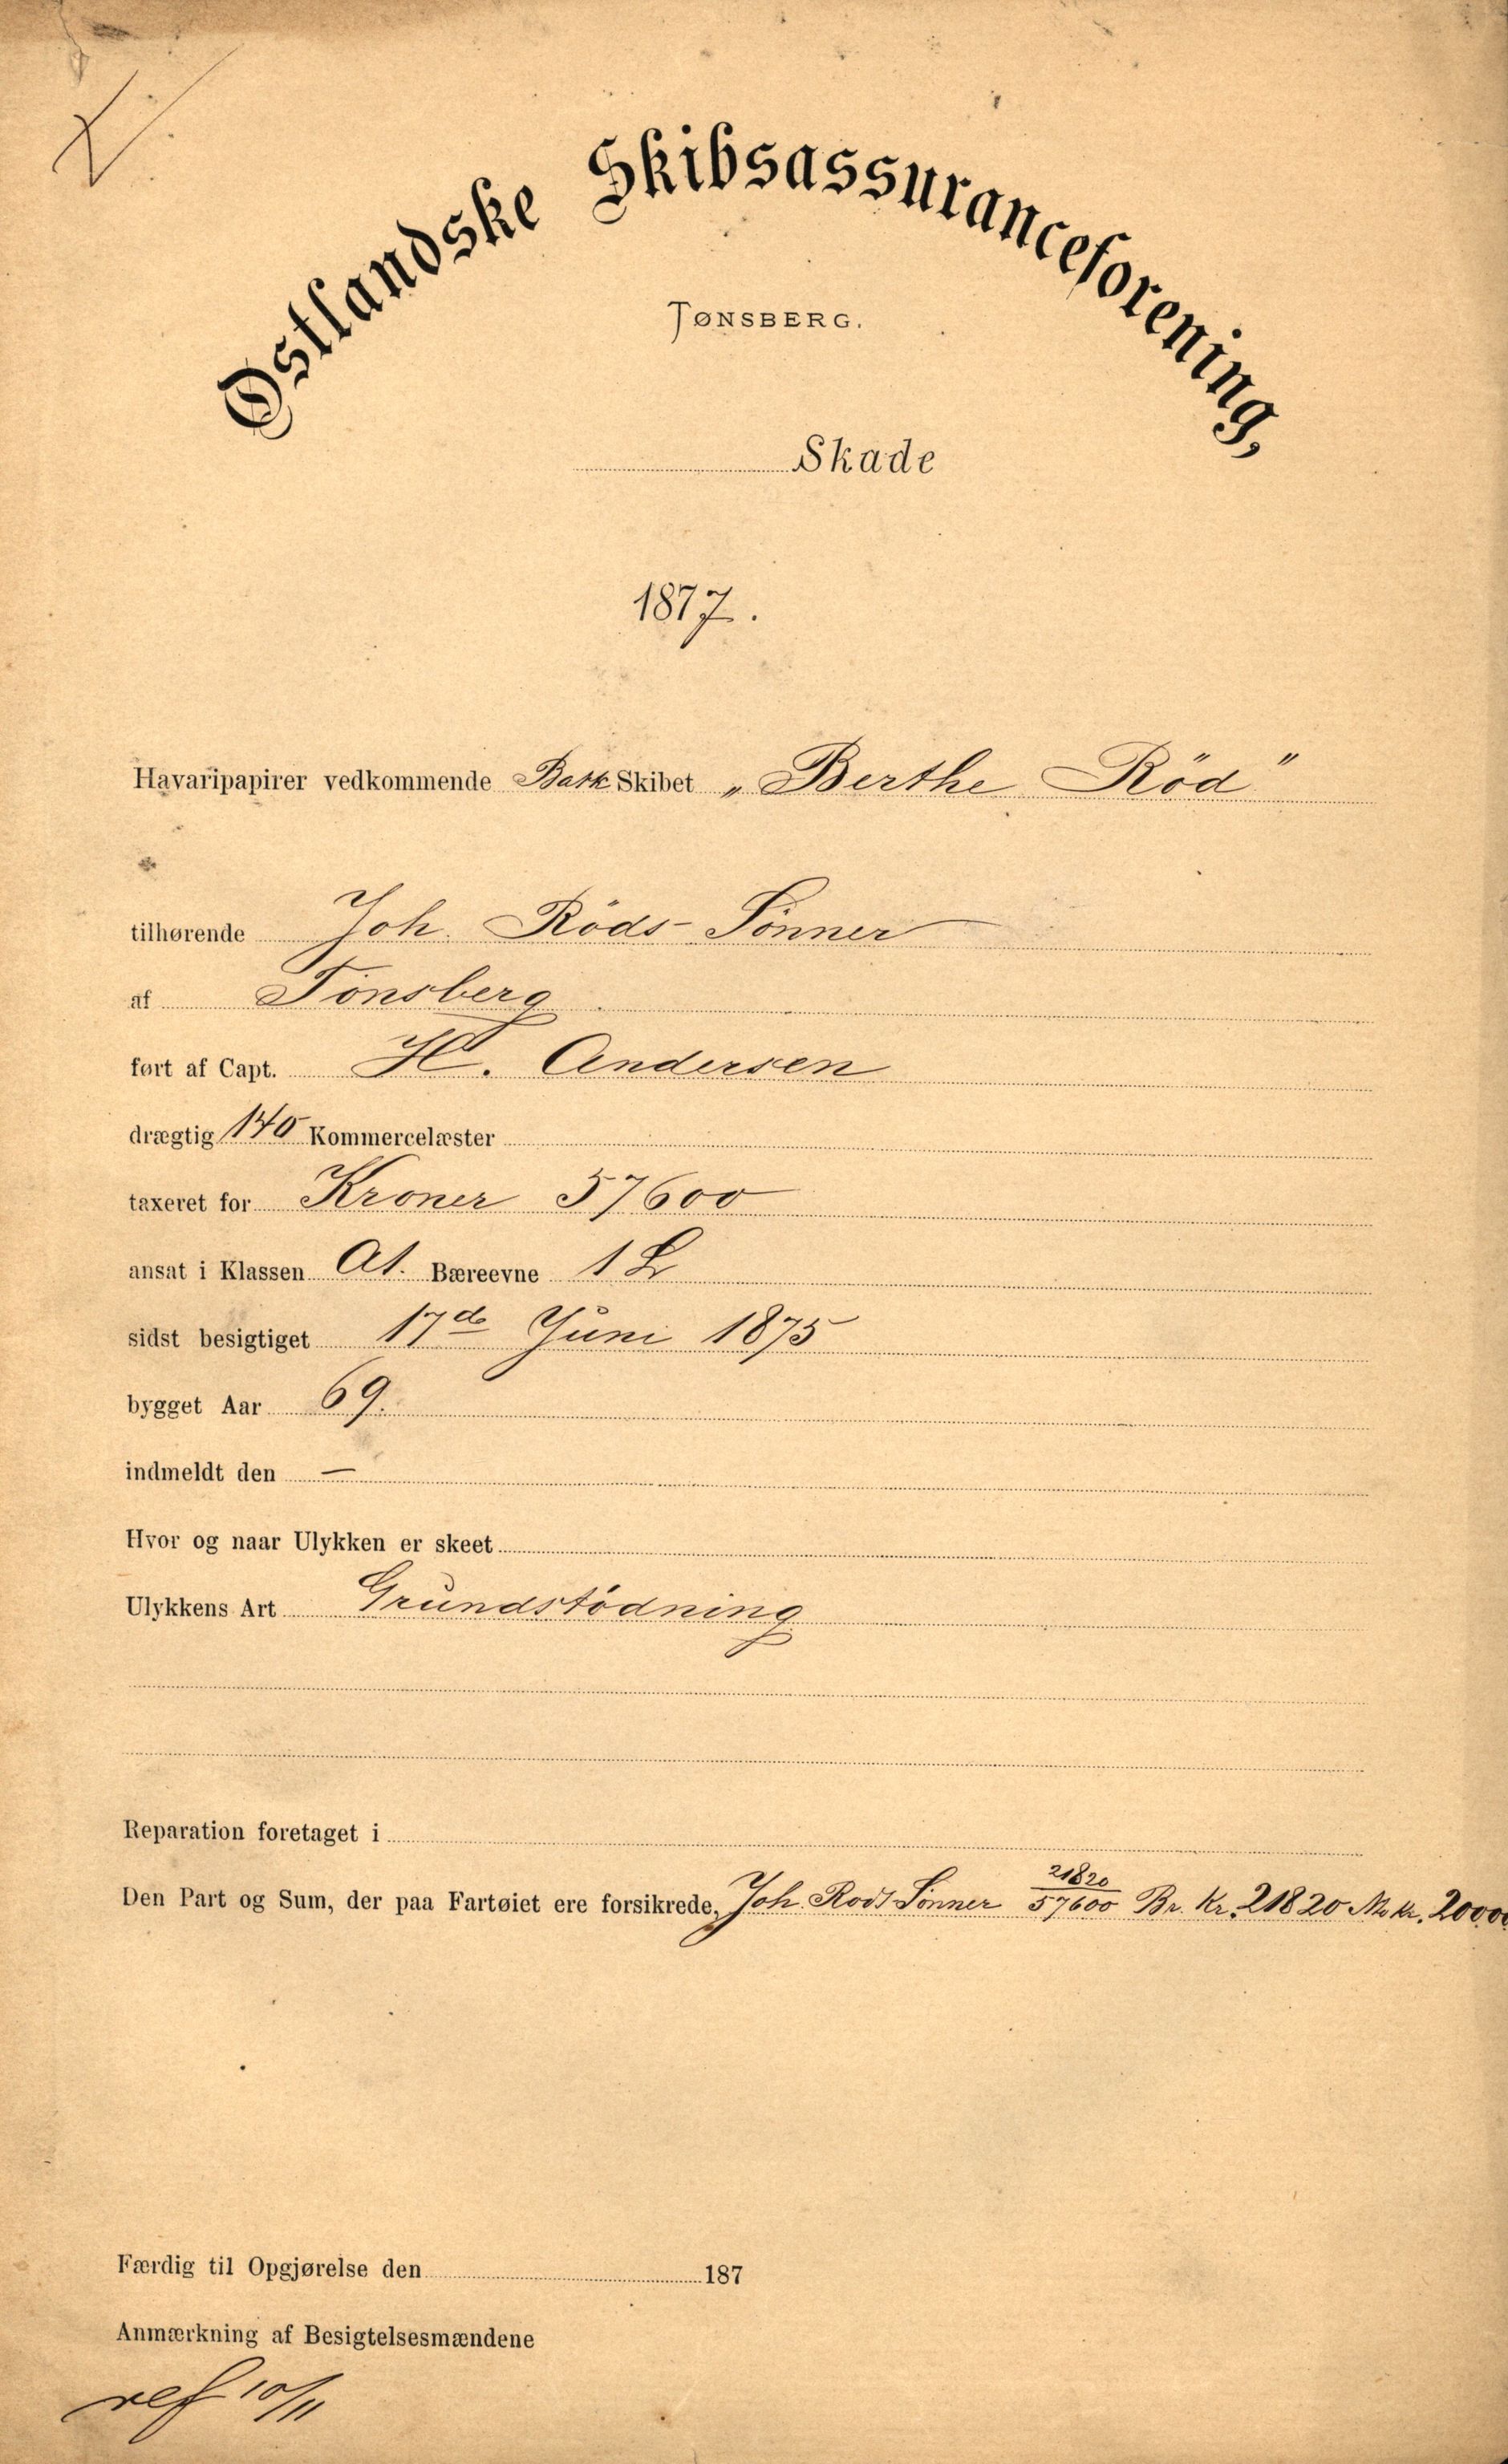 Østlandske Skibsassuranceforening,
TØNSBERG.
Skade
1877.
Havaripapirer vedkommende Bark Skibet „Berthe Röd"
tilhørende Joh. Röds Sönner
af Tönsberg
ført af Capt. H. Andersen
drægtig 140 Kommercelæster
taxeret for Kroner 57600
ansat i Klassen A1. Bæreevne 1
sidst besigtiget 17de Juni 1875
bygget Aar 69.
indmeldt den —
Hvor og naar Ulykken er skeet
Ulykkens Art Grundstödning
Reparation foretaget i
Den Part og Sum, der paa Fartøiet ere forsikrede, Joh. Rods Sönner 21820/57600 Br. Kr. 21820 Kr. 20000
Færdig til Opgjørelse den 187
Anmærkning af Besigtelsesmændene
ref 10/11